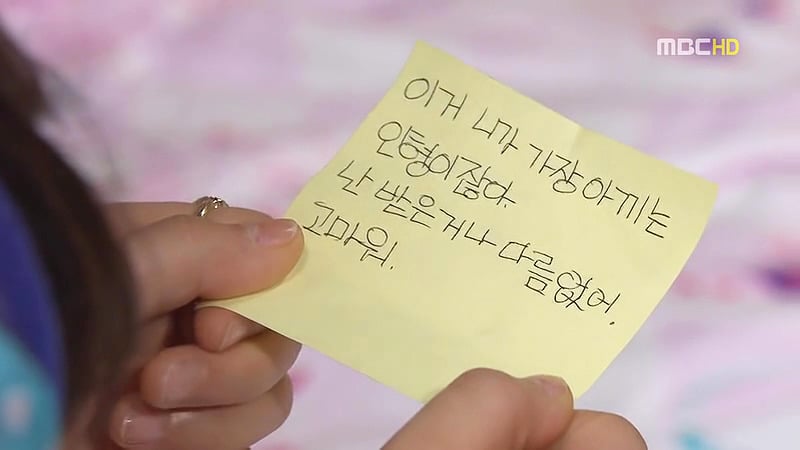 MBC HD
이거 니가 가장 아끼는
인형이잖아.
난 받은거나 다름없어.
고마워.